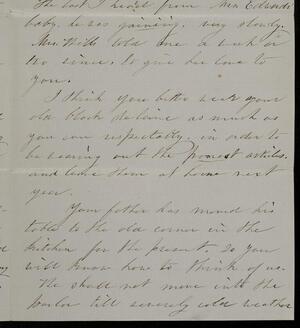 The last I heard from Mrs Edwards'
baby, he was gaining, very slowly.
Mrs. Wells told me a week or
two since, to give her love to
you.
I think you better wear your
old black de laine as much as
you can respectably, in order to
be wearing out the poorest articles,
and leave them at home next
year.
Your father has moved his
table to the old corner in the
kitchen for the present, so you
will know how to think of us.
We shall not move into the
parlor till severely cold weather